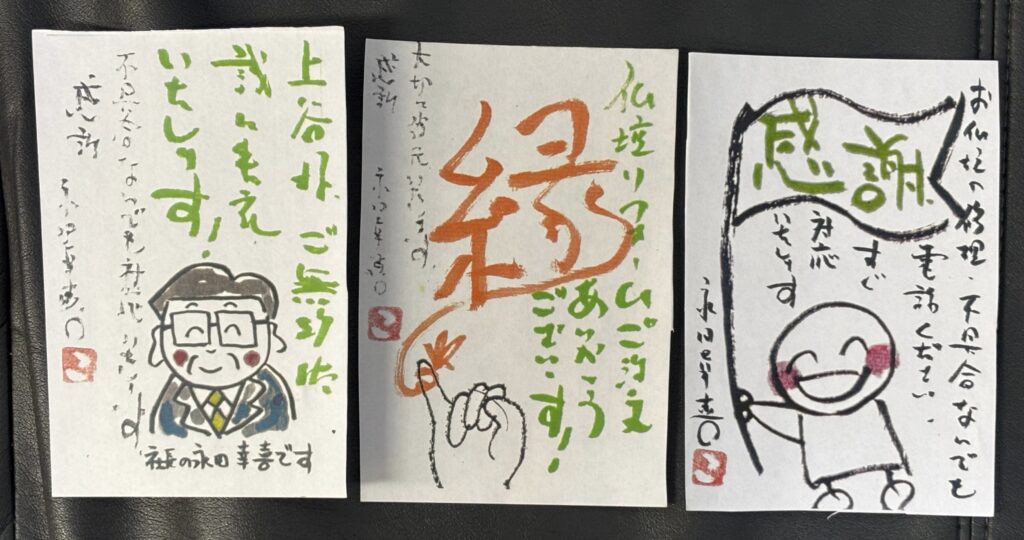 ご無沙汰
いたします!
不具合なんでも対応いたします
感謝
永田幸喜
社長の永田幸喜です
仏壇リフォームご注文
ありがとう
ございます!
縁
大切
感謝
永田幸喜
お仏壇の修理、不具合なんでも
電話ください
感謝
すぐ
対応
いたします
永田幸喜